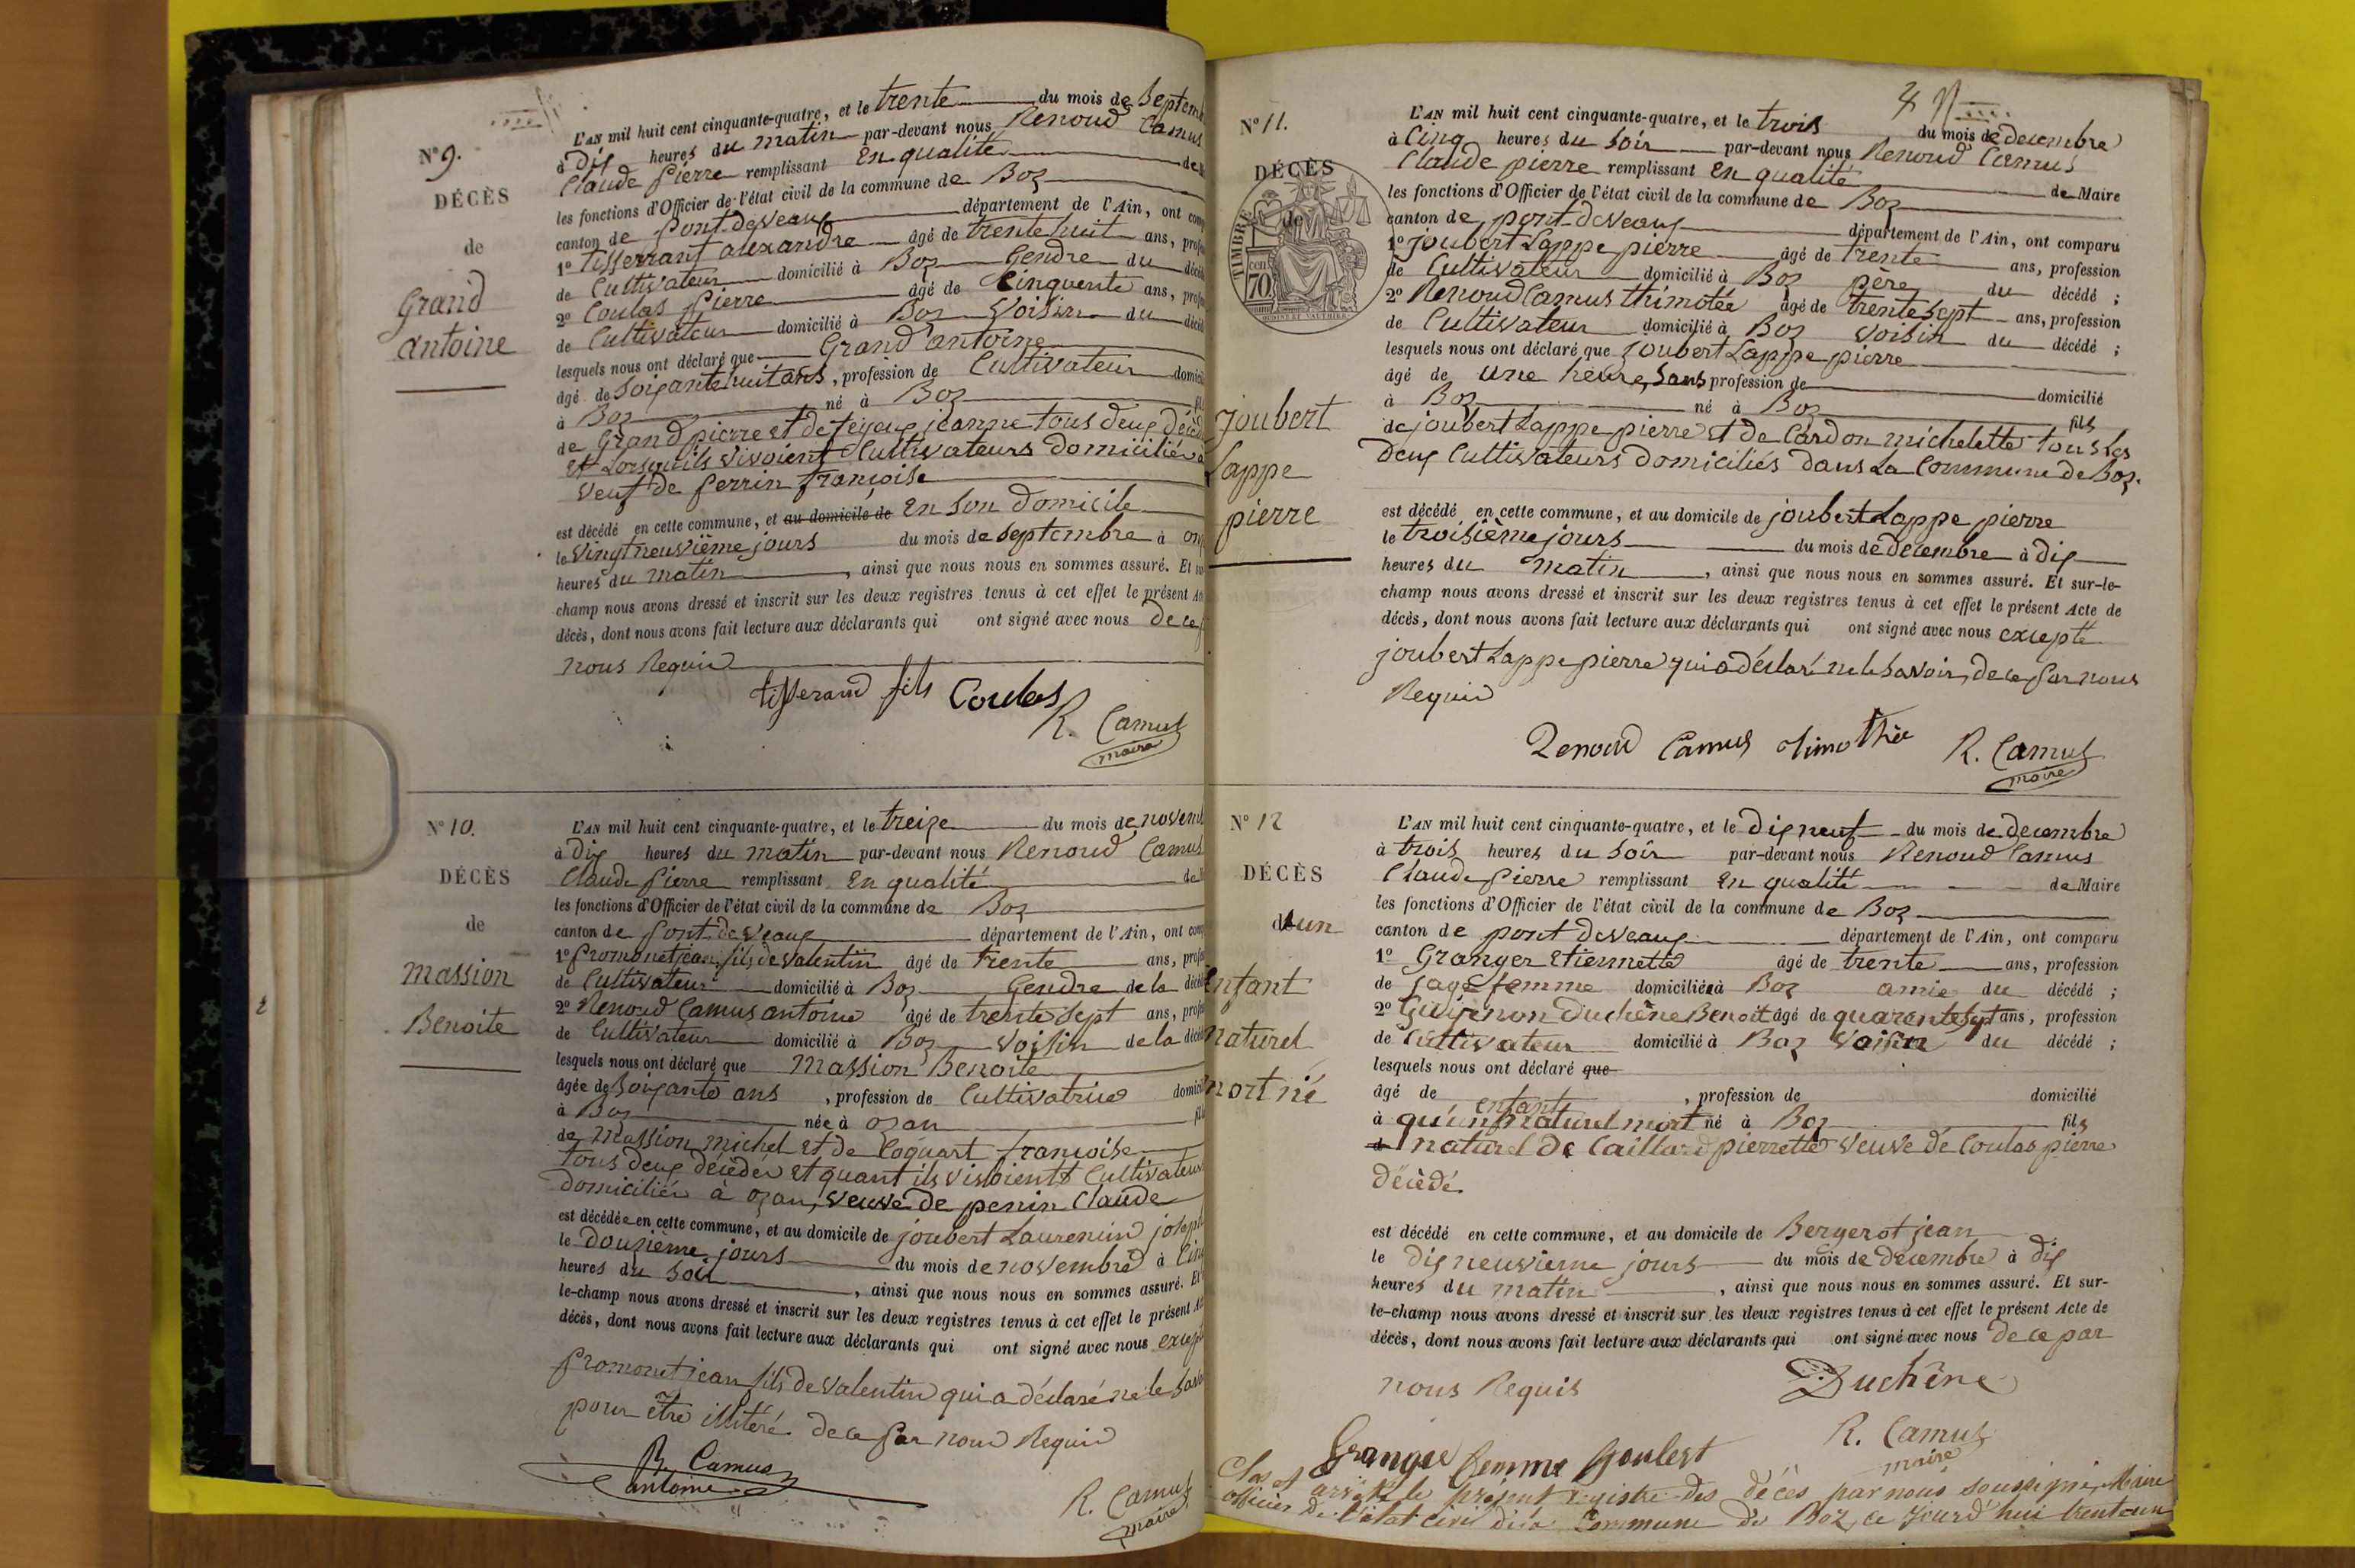 N° 9.
DÉCÈS
de
Grand
antoine
L'AN mil huit cent cinquante-quatre, et le trente du mois de Septem
à dix heures du matin par-devant nous Renoud Camus
Claude pierre remplissant En qualité de
les fonctions d'Officier de l'état civil de la commune de Boz
canton de pont-deveaux département de l'Ain, ont comp
1° Tisserant alexandre âgé de trente huit ans, profes
de Cultivateur domicilié à Boz Gendre du décéd
2° Coulas pierre âgé de Cinquente ans, profes
de Cultivateur domicilié à Boz Voisin du décéd
lesquels nous ont déclaré que Grand antoine
âgé de soixante huit ans, profession de Cultivateur domici
à Boz né à Boz fil
de Grand pierre et de jeanne tous deux décéd
et Lorsqu'ils vivoient Cultivateurs Domiciliés a
veuf de perrin françoise
est décédé en cette commune, et au domicile de En Son Domicile
le vingt neuvième jours du mois de septembre à on
heures du matin, ainsi que nous nous en sommes assuré. Et
champ nous avons dressé et inscrit sur les deux registres tenus à cet effet le présent
décès, dont nous avons fait lecture aux déclarants qui ont signé avec nous de ce
nous Requis
tisserand fils Coulas
R. Camus
maire
N° 10.
DÉCÈS
de
massion
Benoite
L'AN mil huit cent cinquante-quatre, et le treize du mois de novem
à dix heures du matin par-devant nous Renoud Camus
Claude pierre remplissant En qualité de
les fonctions d'Officier de l'état civil de la commune de Boz
canton de pont-deveaux département de l'Ain, ont comp
1° promonet jean fils de valentin âgé de trente ans, profes
de Cultivateur domicilié à Boz Gendre de la décéd
2° Renoud Camus antoine âgé de trente sept ans, profes
de Cultivateur domicilié à Boz Voisin de la décéd
lesquels nous ont déclaré que massion Benoite
âgée de soixante ans, profession de Cultivatrice domicil
à Boz née à ozan fil
de massion michel et de Coquart françoise
tous deux décédés et quant ils visvoient Cultivateurs
domiciliés à ozan, veuve de penin Claude
est décédée en cette commune, et au domicile de joubert Laurencin joseph
le douzième jours du mois de novembre à Cinq
heures du soir, ainsi que nous nous en sommes assuré. Et
le-champ nous avons dressé et inscrit sur les deux registres tenus à cet effet le présent
décès, dont nous avons fait lecture aux déclarants qui ont signé avec nous except
promonet jean fils de valentin qui a déclaré ne le savoi
pour être illitéré de ce par nous Requis
R. Camus
antoine
R. Camus
maire
N° 11.
DÉCÈS
de
TIMBRE
cen
70
joubert
Lappe
pierre
L'AN mil huit cent cinquante-quatre, et le trois du mois de decembre
à Cinq heures du soir par-devant nous Renoud Camus
Claude pierre remplissant En qualité de Maire
les fonctions d'Officier de l'état civil de la commune de Boz
canton de pont-deveaux département de l'Ain, ont comparu
1° joubert Lappe pierre âgé de trente ans, profession
de Cultivateur domicilié à Boz père du décédé ;
2° Renoud Camus thimotée âgé de trente sept ans, profession
de Cultivateur domicilié à Boz voisin du décédé ;
lesquels nous ont déclaré que joubert Lappe pierre
âgé de une heure, sans profession de domicilié
à Boz né à Boz fils
de joubert Lappe pierre et de Cardon michelette tous les
deux Cultivateurs domiciliés dans La Commune de Boz.
est décédé en cette commune, et au domicile de joubert Lappe pierre
le troisième jours du mois de decembre à dix
heures du matin, ainsi que nous nous en sommes assuré. Et sur-le-
champ nous avons dressé et inscrit sur les deux registres tenus à cet effet le présent Acte de
décès, dont nous avons fait lecture aux déclarants qui ont signé avec nous excepté
joubert Lappe pierre qui a déclaré ne le savoir, de ce par nous
Requis
Renoud Camus thimothée R. Camus
maire
N° 12
DÉCÈS
d'un
Enfant
naturel
mort né
L'AN mil huit cent cinquante-quatre, et le dix neuf du mois de decembre
à trois heures du soir par-devant nous Renoud Camus
Claude pierre remplissant En qualité de Maire
les fonctions d'Officier de l'état civil de la commune de Boz
canton de pont deveaux département de l'Ain, ont comparu
1° Granger Etiennette âgé de trente ans, profession
de sage femme domiciliée à Boz amie du décédé ;
2° Guyenon Duchêne Benoit âgé de quarente sept ans, profession
de Cultivateur domicilié à Boz Voisin du décédé ;
lesquels nous ont déclaré que
âgé de , profession de domicilié
à qu'un enfant naturel mort né à Boz fils
de naturel de Caillard pierrette veuve de Coulas pierre
décédé
est décédé en cette commune, et au domicile de Bergerot jean
le dix neuvième jours du mois de décembre à dix
heures du matin, ainsi que nous nous en sommes assuré. Et sur-
le-champ nous avons dressé et inscrit sur les deux registres tenus à cet effet le présent Acte de
décès, dont nous avons fait lecture aux déclarants qui ont signé avec nous de ce par
nous Requis Duchêne
R. Camus
maire
Granger femme Goulest
Clos et arrêté le présent registre des décès par nous soussigné Maire
officier de l'état civil de la Commune de Boz, ce jourd'hui trente un